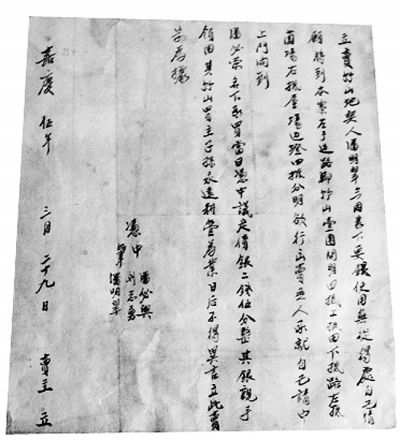 立賣竹山地契人潘明翠今因家下要銀使用無從得處自己情
願將到本寨左手邊路腳竹山壹團開明四抵上抵田下抵路左抵
園場右抵屋場邊墱四抵分明欲行出賣無人承就自己請中
上門問到
潘必榮名下承買當日憑中議定價銀二錢伍分整其銀親手
領用其竹山買主子孫永遠耕管為業日后不得異言立此賣
字為據
憑中 潘必興 刘志勇
筆 潘明翠
嘉慶伍年 二月 二十九日 賣主 立